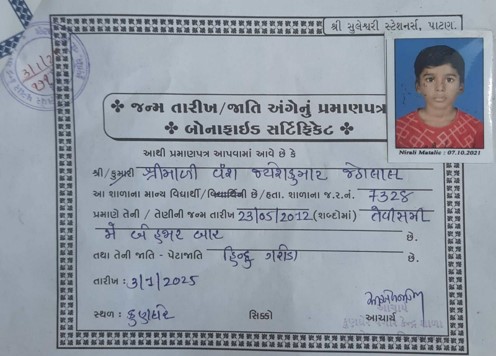 શ્રી સુલેશ્વરી સ્ટેશનર્સ, પાટણ.
Nirali Matalie : 07.10.2021
❖ જન્મ તારીખ/જાતિ અંગેનું પ્રમાણપત્ર
❖ બોનાફાઈડ સર્ટિફિકેટ ❖
આથી પ્રમાણપત્ર આપવામાં આવે છે કે
શ્રી/કુમારી શ્રીમાળી વંશ જયેશકુમાર જેઠાલાલ
આ શાળાના માન્ય વિદ્યાર્થી/વિદ્યાર્થિની છે/હતા. શાળાના જ.ર.નં. 7328
પ્રમાણે તેની / તેણીની જન્મ તારીખ 23/05/2012 (શબ્દોમાં) તેવીસમી
મે બે હજાર બાર છે.
તથા તેની જાતિ - પેટાજાતિ હિન્દુ ગરોડા છે.
તારીખ : 3/1/2025
સ્થળ : કુણઘેર સિક્કો આચાર્ય
આચાર્ય